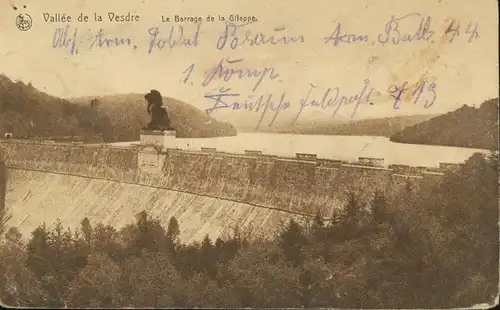 Vallée de la Vesdre Le Barrage de la Gileppe.
Abs. Arm. Soldat Arm. Batl. 44
1. Komp.
Deutsche Feldpost 713